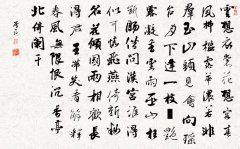 雲想衣裳花想容春
風拂檻露華濃若非
群玉山頭見會向瑤
台月下逢一枝艷
露凝香雲雨巫山枉
斷腸借問漢宮誰得
似可憐飛燕倚新粧
名花傾國兩相歡長
得君王帶笑看解釋
春風無限恨沉香亭
北倚闌干